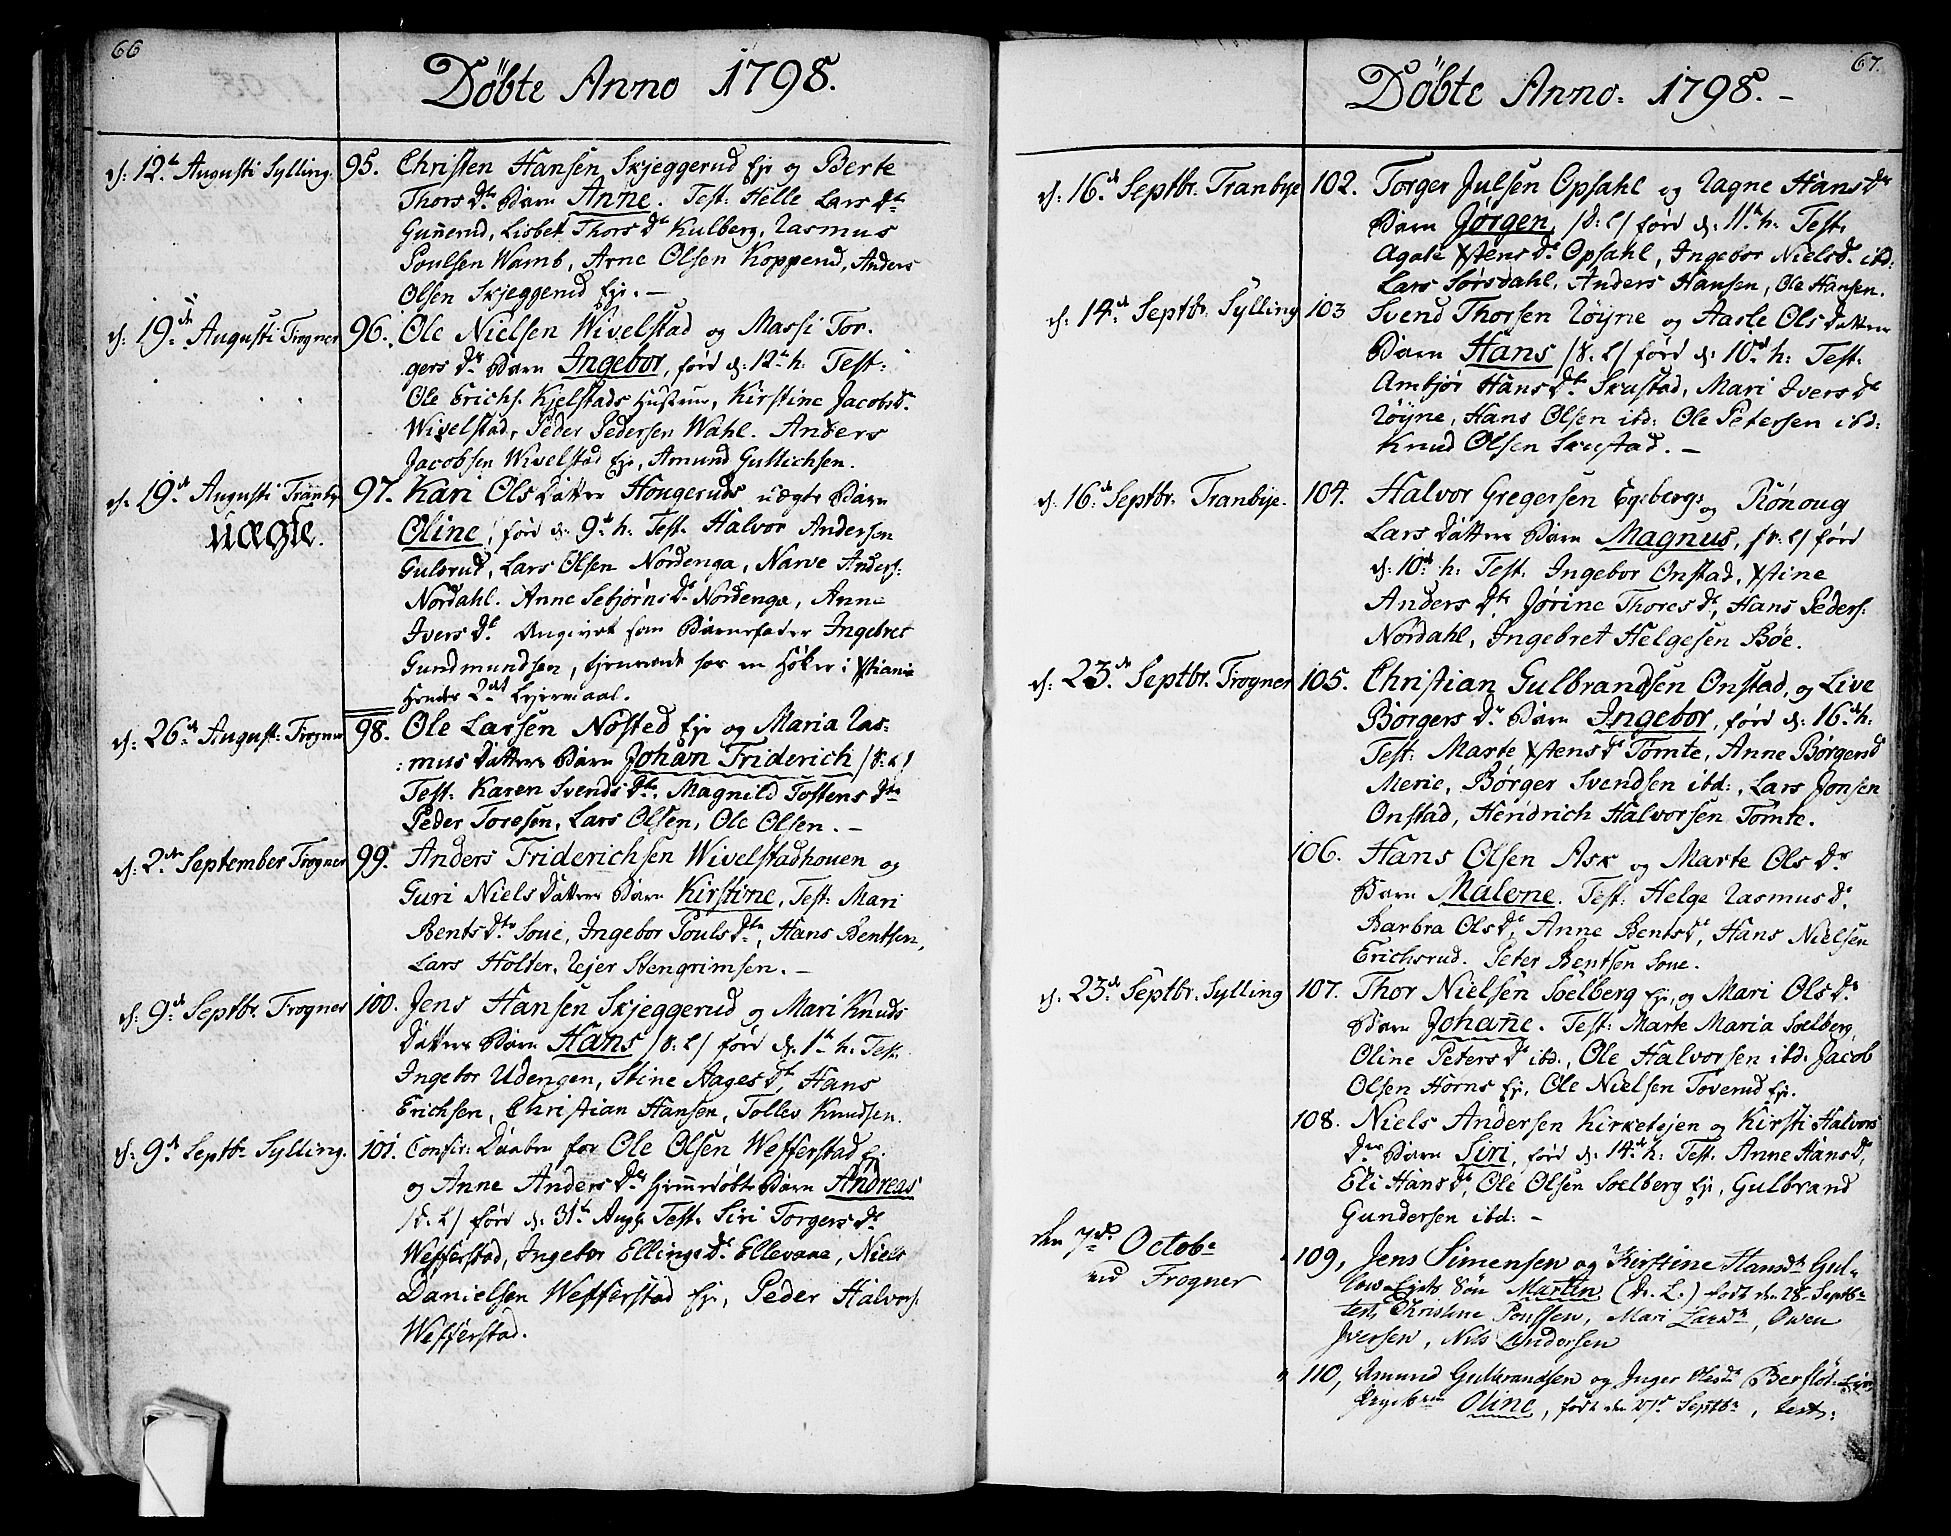 66
Döbte Anno 1798.
d: 12te Augusti Sylling. 95. Christen Hansen Skjeggerud Eje og Berte
Thors Dr. Barn Anne. Test: Helle Lars Dr
Gunnerud, Lisbet Thors Dr Kulberg, Rasmus
Poulsen Wamb, Arne Olsen Kopperud, Anders
Olsen Skjeggerud Eje. —
d: 19de Augusti Frogner 96. Ole Nielsen Wivelstad og Massi Tor-
gers Dr Barn Ingebor, född d: 12te h: Test:
Ole Erichs. Kjelstads Hustrue, Kirstine Jacobs Dr.
Wivelstad, Peder Pedersen Wahl. Anders
Jacobsen Wivelstad Eje, Amund Gullichsen.
d: 19de Augusti Tranby 97. Kari Ols Datter Hougeruds uægte Barn
uægte. Oline, född d: 9de h: Test: Halvor Andersen
Gulsrud, Lars Olsen Nordenga, Narve Anders:
Nordahl. Anne Sebjörns Dr Nordenga, Anne
Ivers Dr. Angivet som Barnefader Ingebret
Gundmundsen, tjenende for en Höker i Xstiania
Hendes 2det Leiermaal.
d: 26de August: Frogner 98. Ole Larsen Nösted Eje og Maria Ras-
:mus Datters Barn Johan Friderich /d: L/
Test: Karen Svends Dr. Magnild Tostens Dr
Peder Toresen, Lars Olsen, Ole Olsen. —
d: 2den September Frogner 99. Anders Friderichsen Wivelstadhouen og
Guri Niels Datters Barn Kirstine, Test: Mari
Bents Dr Soue, Ingebor Pouls Dr, Hans Bentsen,
Lars Holter, Rejer Stengrimsen. —
d: 9de Septbr. Frogner 100. Jens Hansen Skjeggerud og Mari Knuds
Datters Barn Hans /d: L/ född d: 1te h: Test:
Ingebor Udengen, Stine Aages Dr, Hans
Erichsen, Christian Hansen, Tollev Knudsen.
d: 9de Septbr Sylling. 101. Confir: Daaben for Ole Olsen Wefferstad Ej:
og Anne Anders Dr Hiemmedöbte Barn Andreas
/d: L/ född d: 31te Aug: Test: Siri Torgers Dr
Wefferstad, Ingebor Ellings Dr Ellevane, Niels
Danielsen Wefferstad Eje, Peder Halvors:
Wefferstad.
67.
Döbte Anno. 1798. —
d: 16de Septbr. Tranbye 102. Torger Julsen Opsahl og Ragne Hans Dr
Barn Jörgen, /d: L/ född d: 11te h: Test:
Agate Xstens Dr Opsahl, Ingebor Niels Dr ibd:
Lars Sörsdahl, Anders Hansen, Ole Hansen.
d: 14de Septbr. Sylling 103 Svend Thorsen Röyne og Aasle Ols Datters
Barn Hans /d: L/ född d: 10de h: Test:
Ambjör Hans Dr Skustad, Mari Ivers Dr
Röyne, Hans Olsen ibd: Ole Petersen ibd:
Knud Olsen Skustad. —
d: 16de Septbr. Tranbye. 104. Halvor Gregersen Egebergs og Rönoug
Lars Datters Barn Magnus, /d: L/ född
d: 10de h: Test: Ingebor Onstad, Xstine
Anders Dr, Jörine Thores Dr, Hans Peders:
Nordahl, Ingebret Helgesen Böe.
d: 23de Septbr. Frogner 105. Christian Gulbrandsen Onstad, og Live
Börgers Dr Barn Ingebor, född d: 16de h:
Test: Marte Xstens Dr Tömte, Anne Börgers D
Merie, Börger Svendsen ibd:, Lars Jonsen
Onstad, Hendrich Halvorsen Tömte.
106. Hans Olsen Ask og Marte Ols Dr
Barn Malene. Test: Helge Rasmus Dr.
Barbra Ols Dr, Anne Bents Dr, Hans Nielsen
Erichsrud. Peter Bentsen Soue.
d: 23de Septbr. Sylling 107. Thor Nielsen Soelberg Eje, og Mari Ols Dr
Barn Johanne. Test: Marte Maria Soelberg,
Oline Peters Dr ibd:, Ole Halvorsen ibd: Jacob
Olsen Horns Eje, Ole Nielsen Toverud Eje.
108. Niels Andersen Kirketejen og Kirsti Halvors
Dr Barn Siri, född d: 14de h: Test: Anne Hans D,
Eli Hans Dr, Ole Olsen Soelberg Eje, Gulbrand
Gundersen ibd: —
den 7de Octobr 109, Jens Simensen og Kirstine Hansdr Gul-
ved Frogner Sön Martin (d. L.) födt den 28. Septbr
test, Christine Poulsen, Mari Larsdr, Owen
Iversen, Nils Andersen
110, Amund Gulbrandsen og Inger Olesdr Berflöt
Pigebarn Oline, födt den 27de Septbr, test: